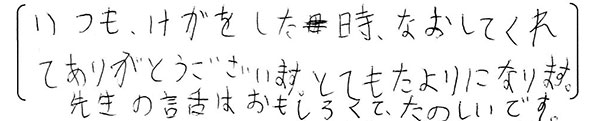 いつも、けがをした時、なおしてくれ
てありがとうございます。とてもたよりになります。
先生の言舌はおもしろくて、たのしいです。